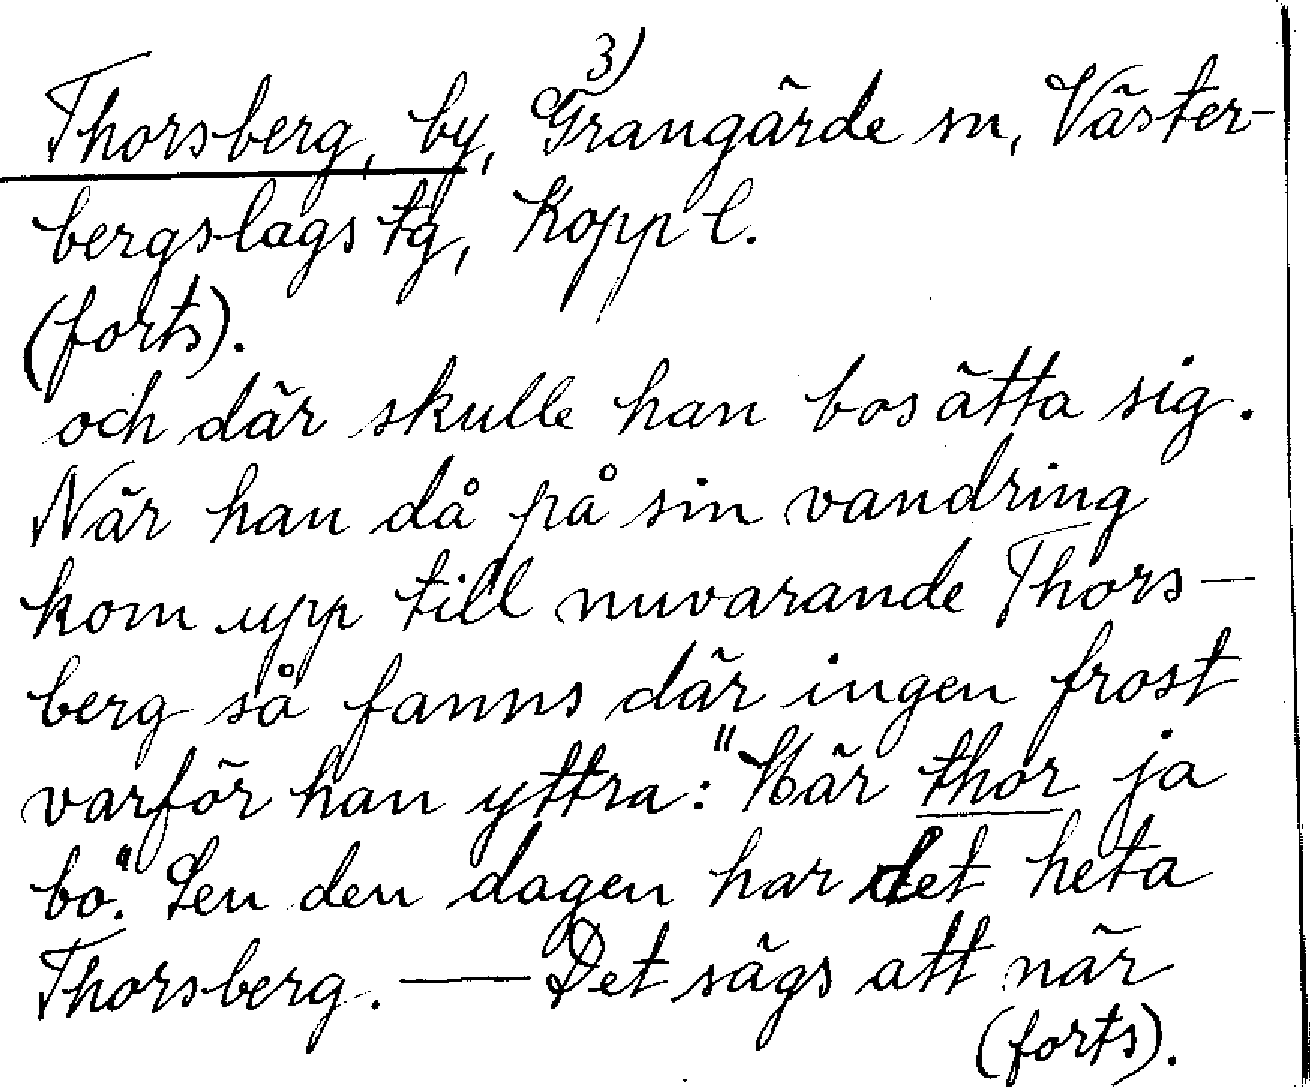 3)
Thorsberg, by, Grangärde sn, Väster-
bergslags tg, Kopp l.
(forts).
och där skulle han bosätta sig.
När han då på sin vandring
kom upp till nuvarande Thors-
berg så fanns där ingen frost
varför han yttra: "Här thor ja
bo". Sen den dagen har det heta
Thorsberg. — Det sägs att när
(forts).